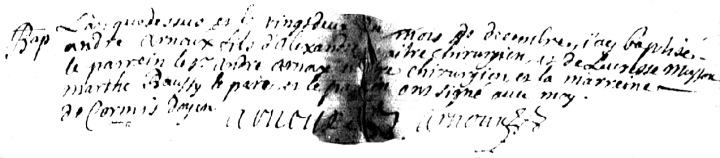 Bap L'an que dessus et le vingt deux du mois de decembre j'ay baptisé
andré arnoux fils d'alixandre maitre chirurgien et de Lucresse
le parrein le Sr andré arnoux chirurgien et la marreine
marthe le pere et le parrein ont signé avec moy
de Cormis doyen arnoux arnoux